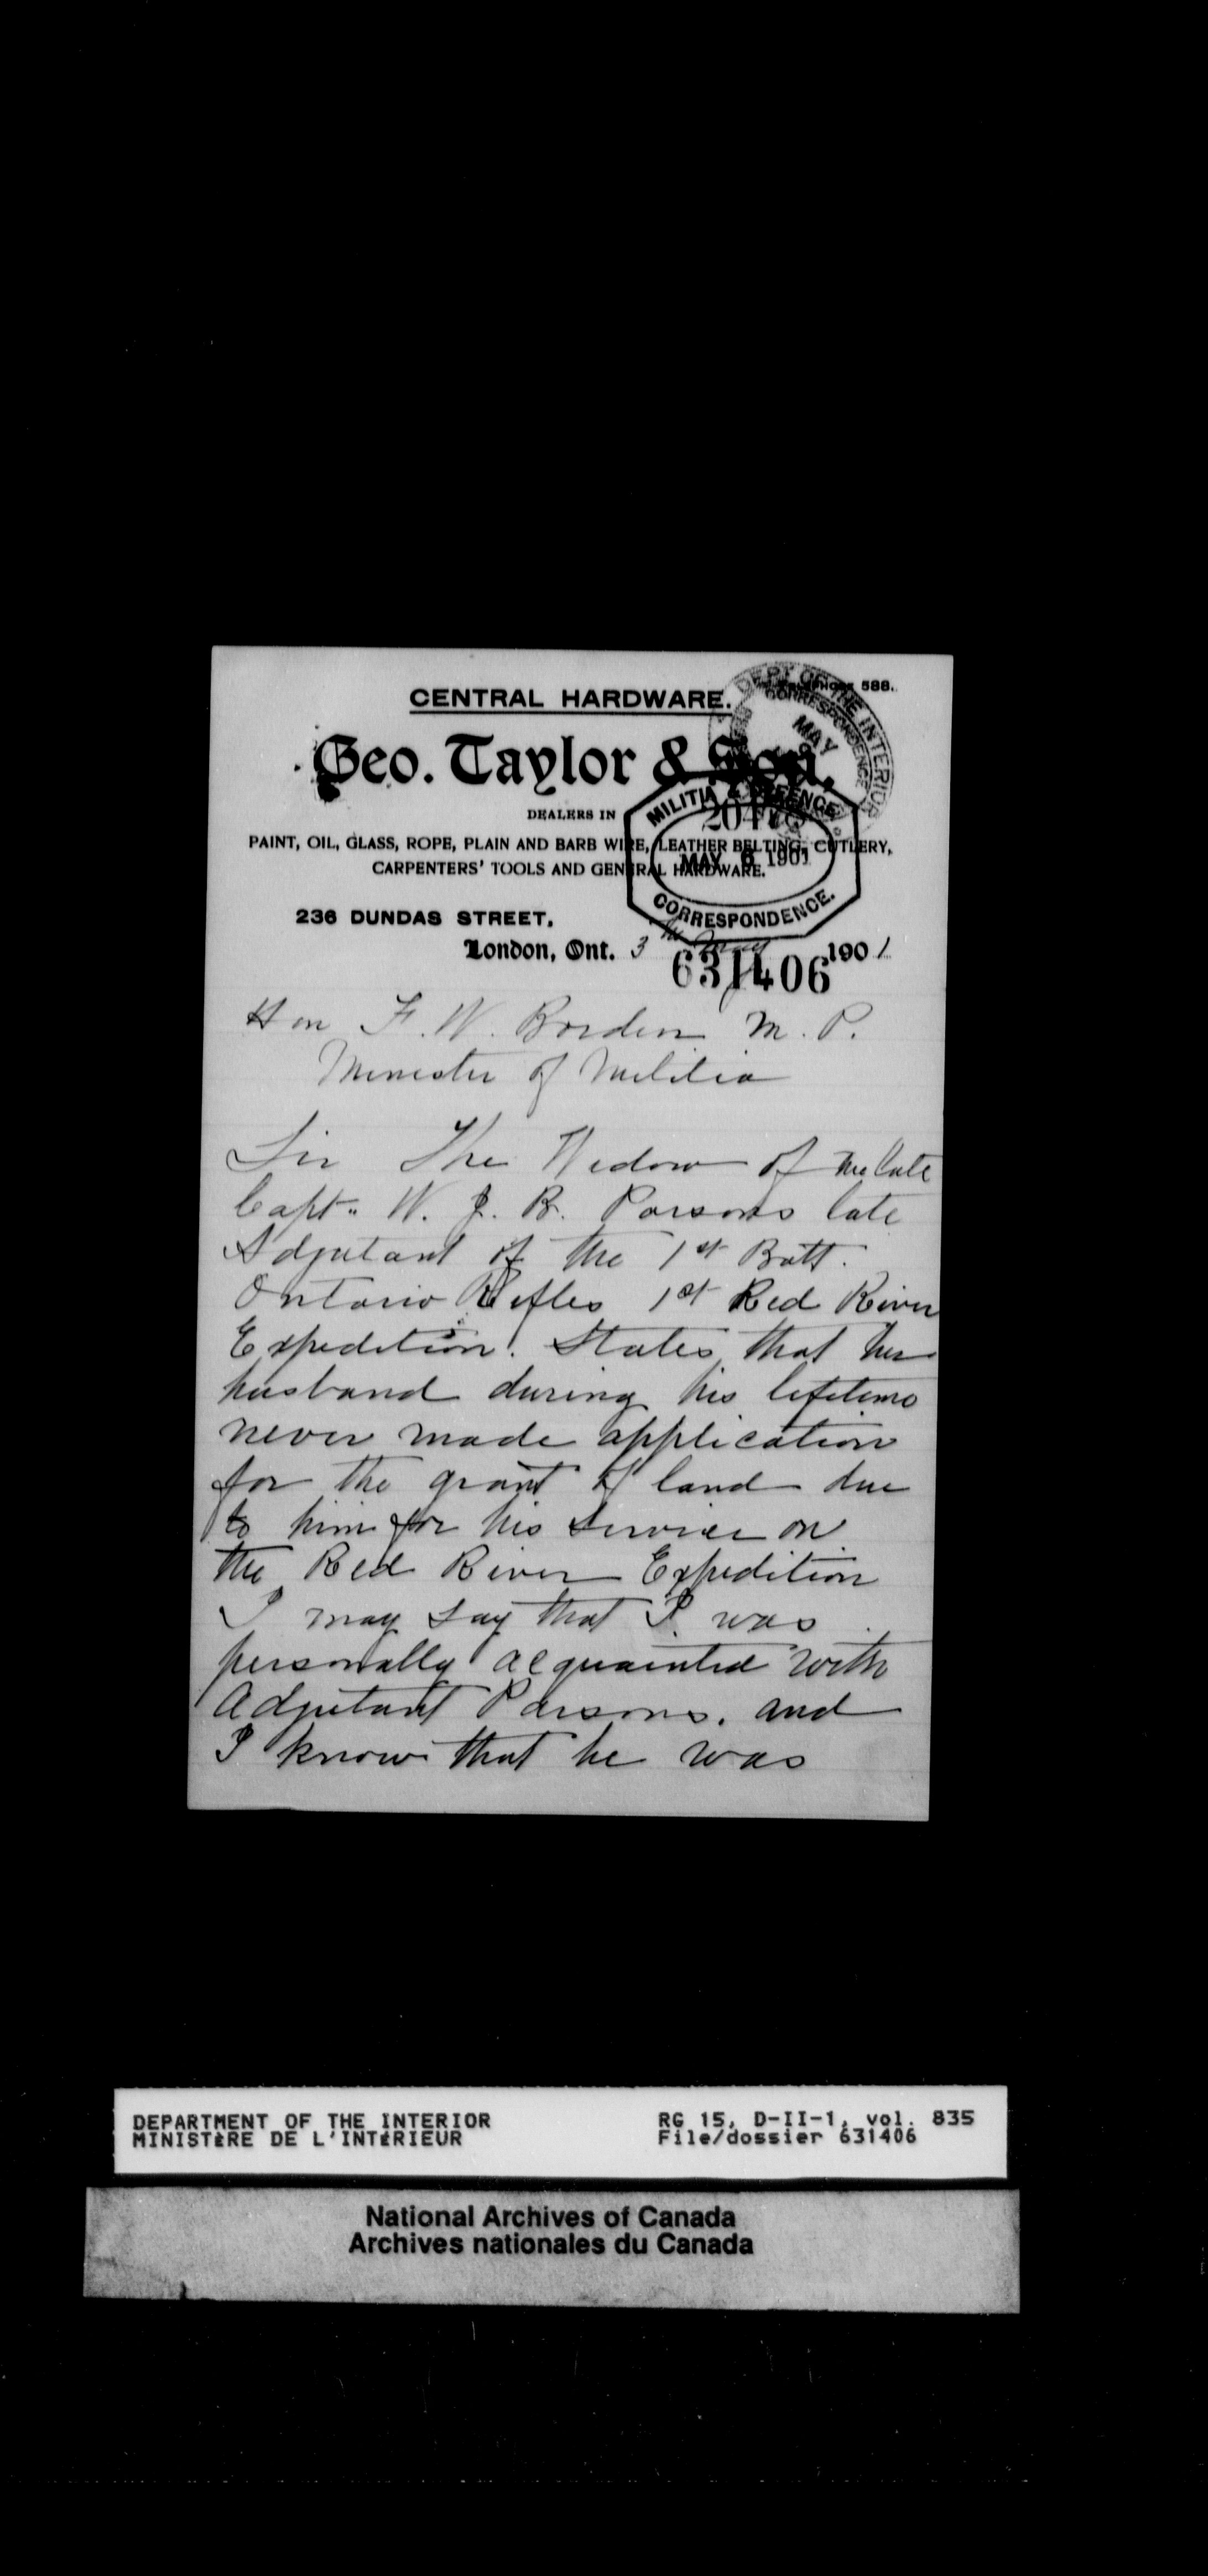 TELEPHONE 588.
CENTRAL HARDWARE.
DEPT OF THE INTERIOR
CORRESPONDENCE
MAY
Geo. Taylor & Son,
DEALERS IN
PAINT, OIL, GLASS, ROPE, PLAIN AND BARB WIRE, LEATHER BELTING, CUTLERY,
CARPENTERS' TOOLS AND GENERAL HARDWARE.
MILITIA & DEFENCE
MAY 6 1901
CORRESPONDENCE.
236 DUNDAS STREET.
London, Ont. 3 May 1901
631406
Hon F. W. Borden M. P.
Minister of Militia
Sir The Widow of the late
Capt. W. J. B. Parsons late
Adjutant of the 1st Batt.
Ontario Rifles 1st Red River
Expedition. States that her
husband during his lifetime
never made application
for the grant of land due
to him for his service on
the Red River Expedition
I may say that I was
personally acquainted with
Adjutant Parsons. and
I know that he was
DEPARTMENT OF THE INTERIOR
MINISTÈRE DE L'INTÉRIEUR
RG 15, D-II-1, vol. 835
File/dossier 631406
National Archives of Canada
Archives nationales du Canada